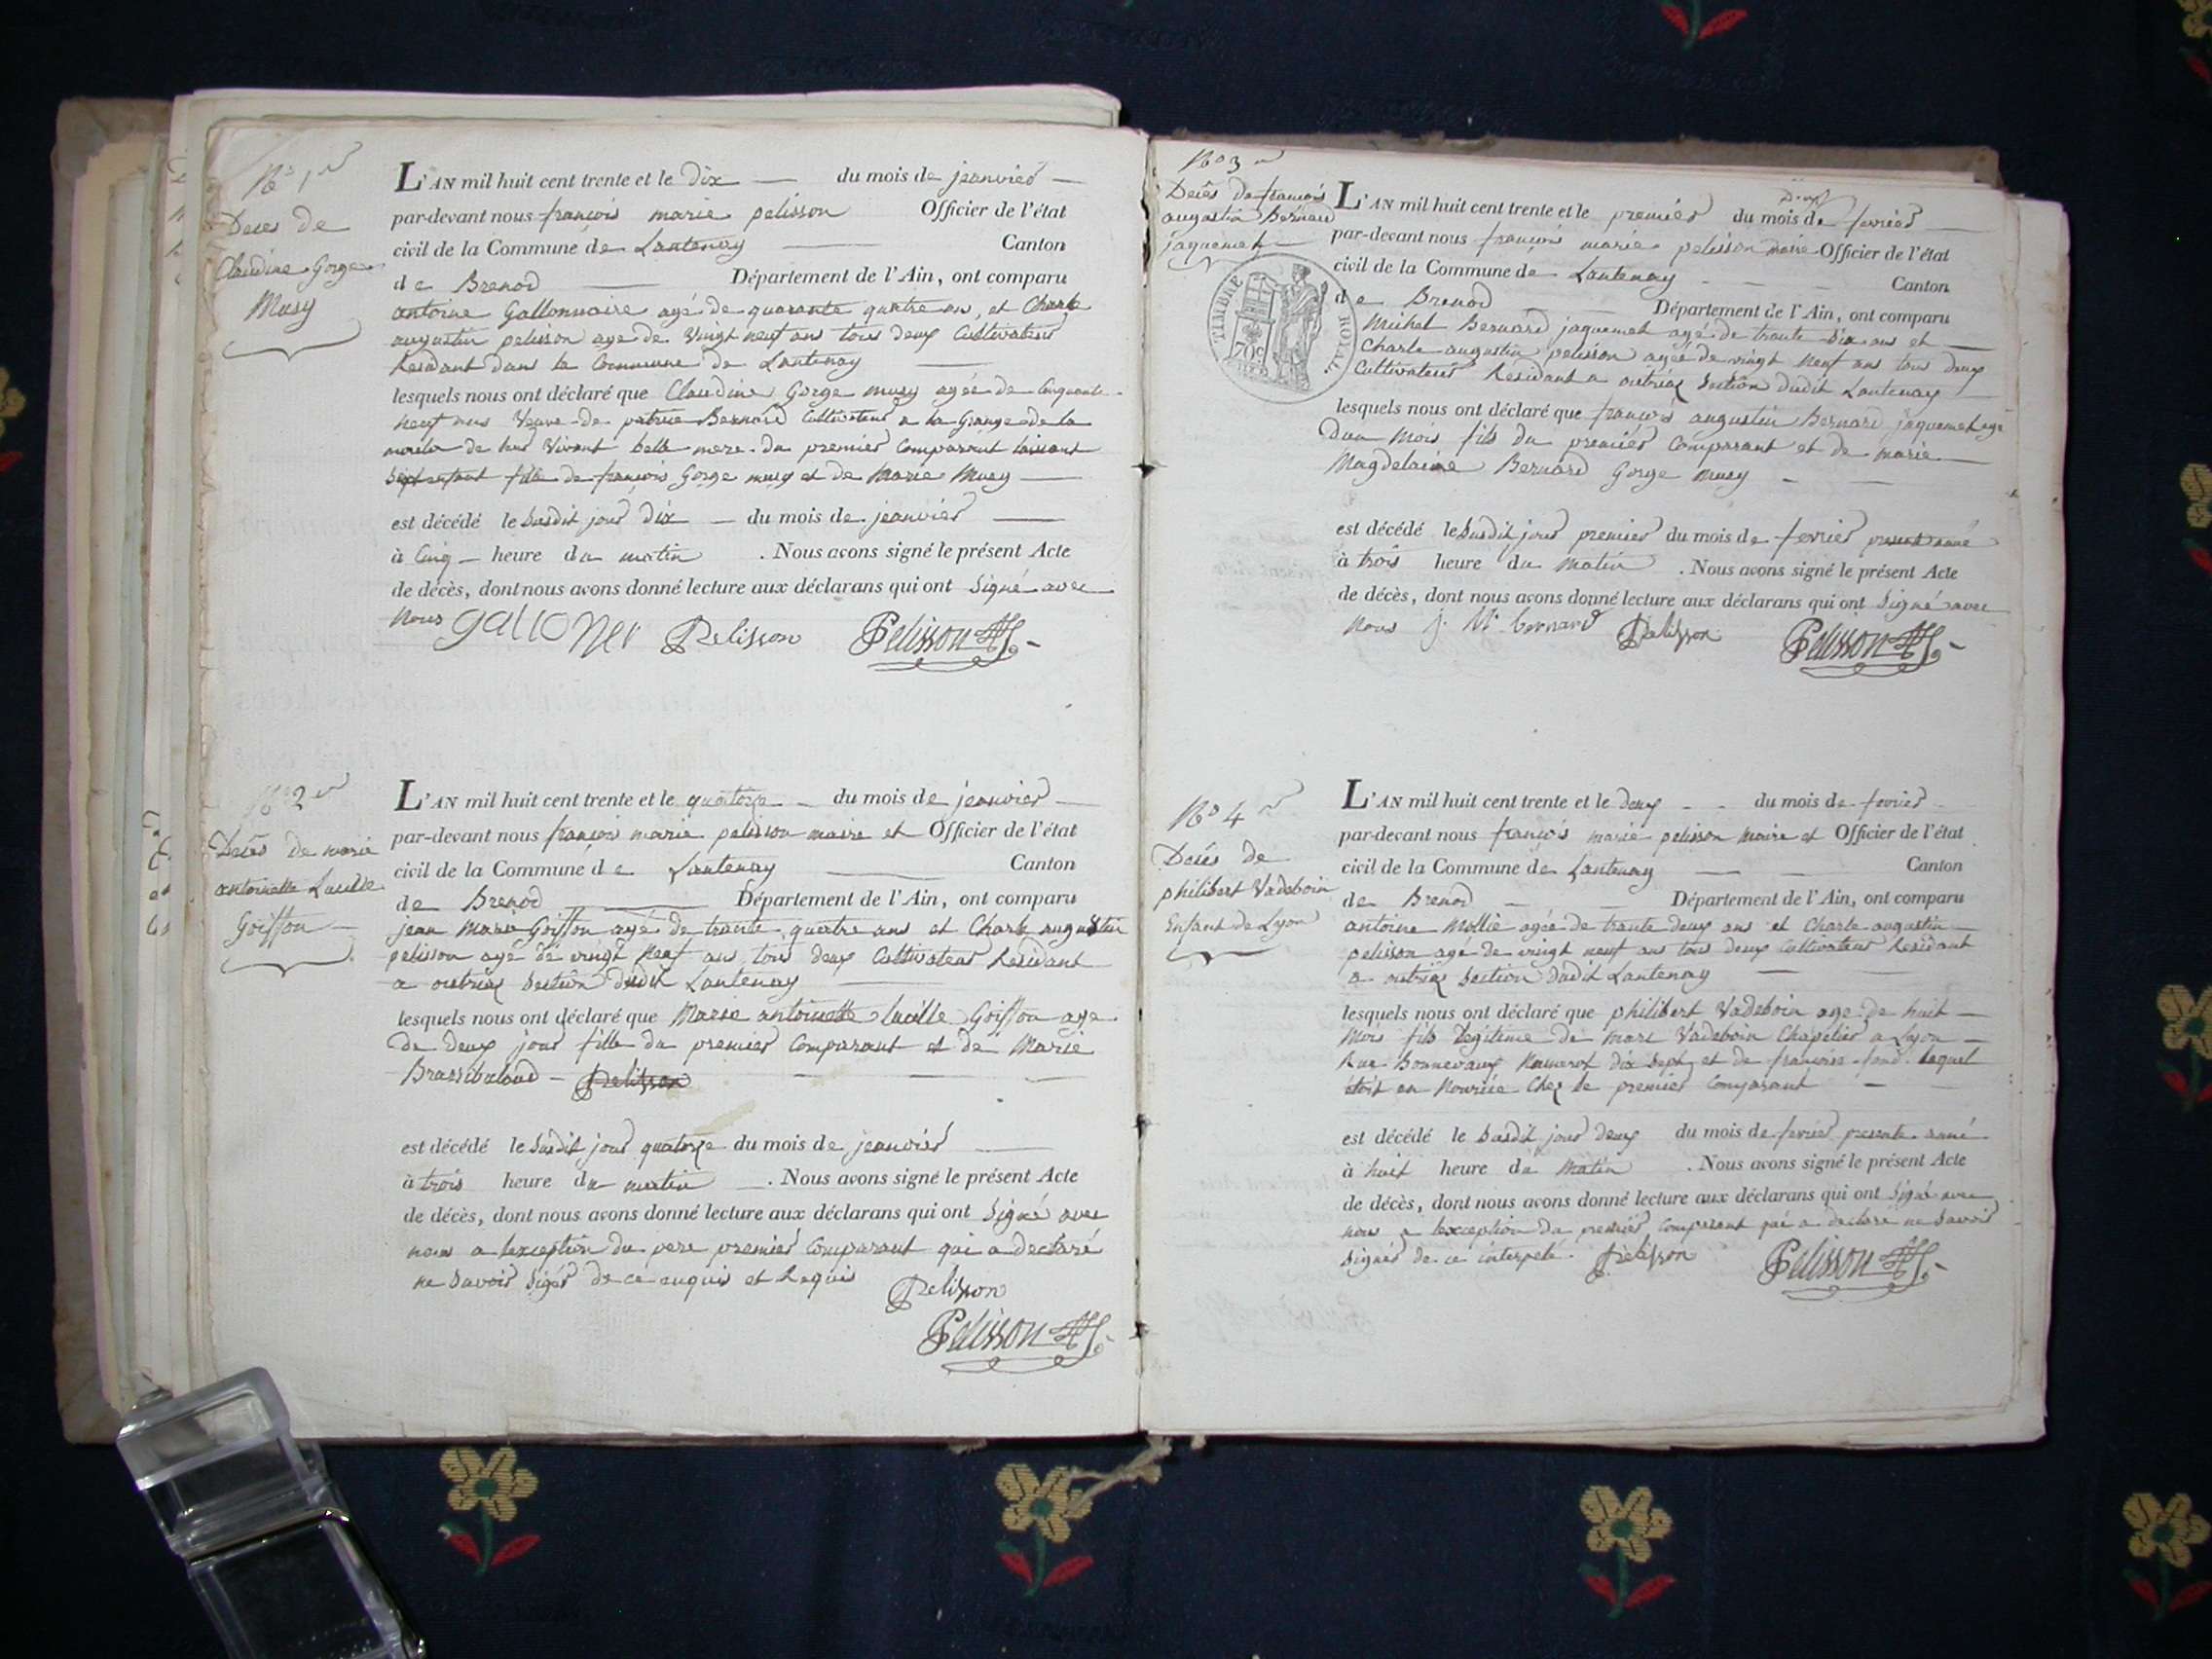 No 1er
Deces de
Claudine Gorge
Musy
L'AN mil huit cent trente et le dix — du mois de jeanvier —
par-devant nous françois marie pelisson Officier de l'état
civil de la Commune de Lantenay — Canton
de Brenod — Département de l'Ain, ont comparu
antoine Gallonnaire agé de quarante quatre ans, et Charle
augustin pelisson age de vingt neuf ans tous deux Cultivateur
Residant dans la Commune de Lantenay —
lesquels nous ont déclaré que Claudine Gorge musy agée de Cinquante
neuf ans Veuve de patrice Bernard Cultivateur a la Grange de la
de Vivant belle mere du premier Comparant laissant
Sept enfant fille de françois Gorge musy et de Marie Musy —
est décédé le Susdit jour dix — du mois de jeanvier —
à Cinq — heure du matin . Nous avons signé le présent Acte
de décès, dont nous avons donné lecture aux déclarans qui ont Signé avec
Nous galloner Pelisson Pelisson
No 2
Decès de marie
antoinette Lucille
Goiffon
L'AN mil huit cent trente et le quatorze — du mois de jeanvier —
par-devant nous françois marie pelisson maire et Officier de l'état
civil de la Commune de Lantenay — Canton
de Brenod — Département de l'Ain, ont comparu
jean Marie Goiffon agé de trante quatre ans et Charle augustin
pelisson agé de vingt neuf ans tous deux Cultivateur Residant
a outriaz Section dudit Lantenay —
lesquels nous ont déclaré que Marie antoinette Lucille Goiffon age
de deux jour fille du premier Comparant et de Marie
— Pelisson —
est décédé le Susdit jour quatorze du mois de jeanvier —
à trois heure du matin — . Nous avons signé le présent Acte
de décès, dont nous avons donné lecture aux déclarans qui ont Signé avec
nous a lexception du pere premier Comparant qui a declaré
ne Savoir de ce enquis et Requis Pelisson
Pelisson
No 3
Decès de françois
augustin Bernard
jaquemet
TIMBRE ROYAL
70c
L'AN mil huit cent trente et le premier du mois de fevrier —
par-devant nous françois marie pelisson maire Officier de l'état
civil de la Commune de Lantenay — Canton
de Brenod — Département de l'Ain, ont comparu
Michel Bernard jaquemet agé de trante Six ans et —
Charle augustin pelisson agée de vingt neuf ans tous deux
Cultivateur Residant a outriaz Section dudit Lantenay
lesquels nous ont déclaré que françois augustin Bernard jaquemet age
dun Mois fils du premier Comparant et de marie —
Magdelaine Bernard Gorge musy - —
est décédé le Susdit jour premier du mois de fevrier
à trois heure du Matin . Nous avons signé le présent Acte
de décès, dont nous avons donné lecture aux déclarans qui ont Signé avec
Nous bernard Pelisson Pelisson
No 4
Decés de
philibert Vadeboin
Enfant de Lyon
L'AN mil huit cent trente et le deux - - du mois de fevrier -
par-devant nous françois marie pelisson maire et Officier de l'état
civil de la Commune de Lantenay — Canton
de Brenod — Département de l'Ain, ont comparu
antoine Mollie agée de trante deux ans et Charle augustin —
pelisson agé de vingt neuf ans tous deux Cultivateur Residant
a outriaz Section dudit Lantenay —
lesquels nous ont déclaré que philibert Vadeboin age de huit —
Mois fils legitime de marc Vadeboin Chapelier a Lyon —
Rue Bonnevaux Numerot dix Sept et de françoise laquel
étoit en Nourrice Chez le premier Comparant —
est décédé le Susdit jour deux du mois de fevrier presente anné
à huit heure du Matin . Nous avons signé le présent Acte
de décès, dont nous avons donné lecture aux déclarans qui ont Signé avec
nous a lexception du premier Comparant qui a declaré ne Savoir
Signer de ce interpelé. Pelisson Pelisson